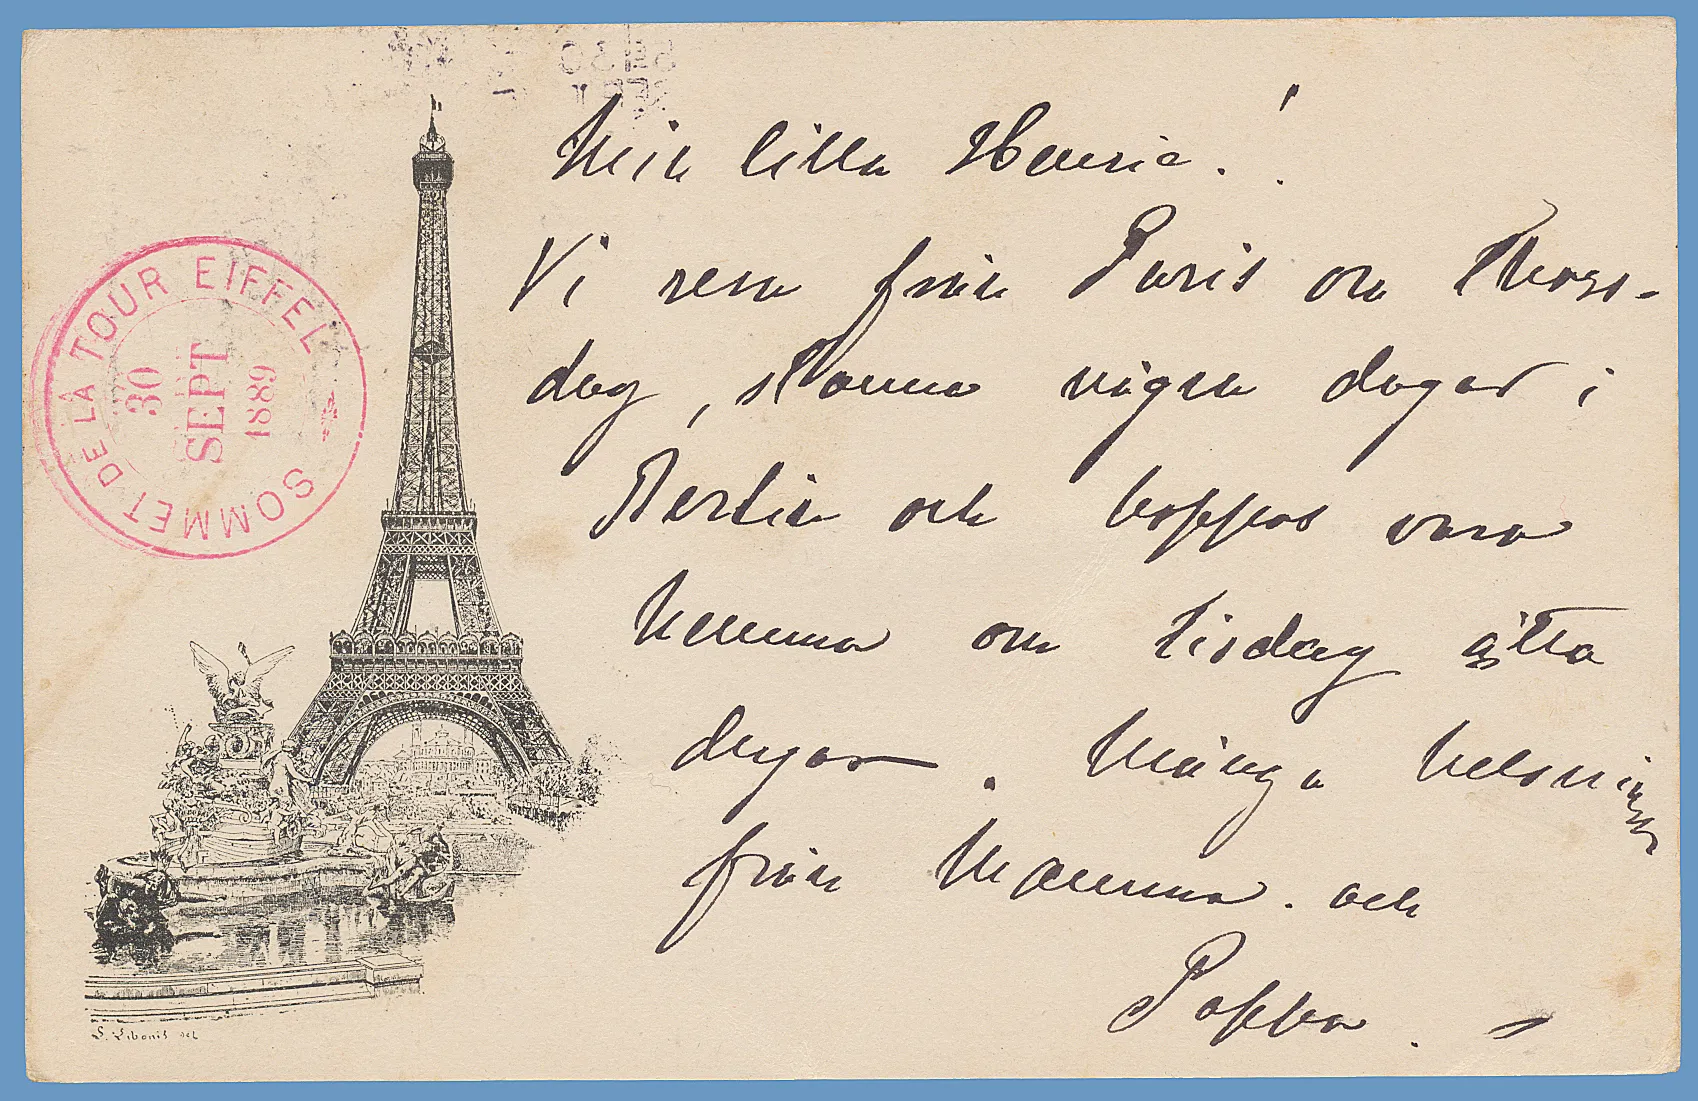 SOMMET DE LA TOUR EIFFEL
30
SEPT
1889
Min lilla Henric.!
Vi resa från Paris om Thors-
dag, stanna några dagar i
Berlin och hoppas vara
hemma om tisdag åtta
dagar. Många helsningar
från Mamma. och
Pappa.